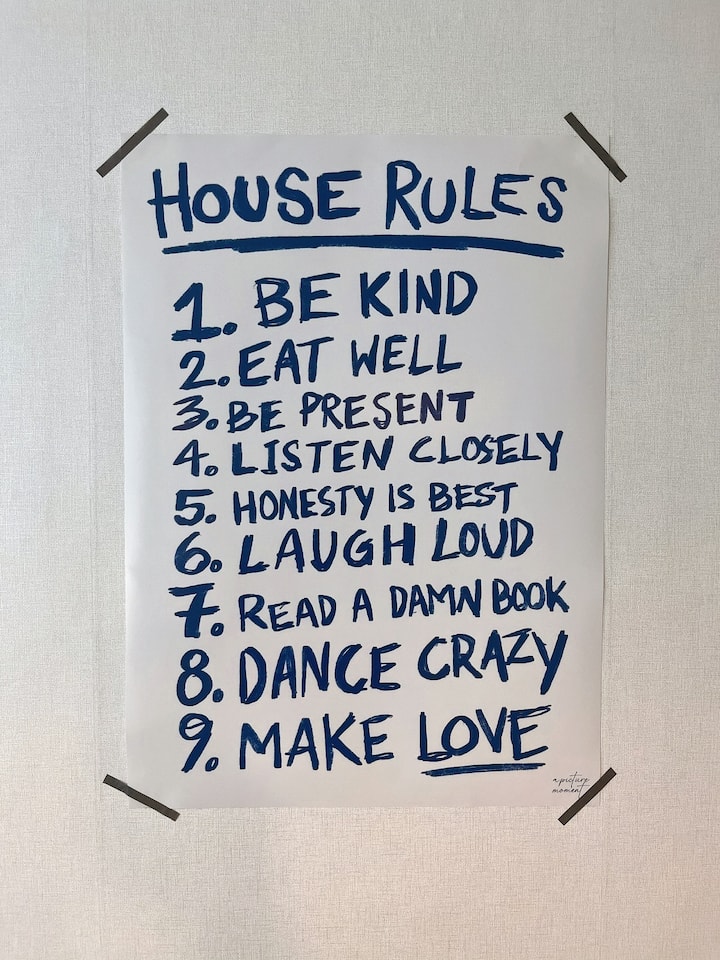 HOUSE RULES
1. BE KIND
2. EAT WELL
3. BE PRESENT
4. LISTEN CLOSELY
5. HONESTY IS BEST
6. LAUGH LOUD
7. READ A DAMN BOOK
8. DANCE CRAZY
9. MAKE LOVE
a picture
moment